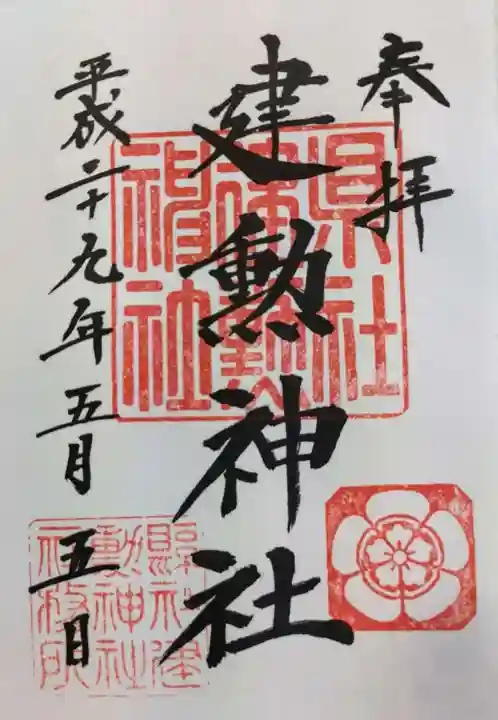 奉拝
建勲神社
平成二十九年五月五日
県社
建勲
神社
縣社建
勲神社